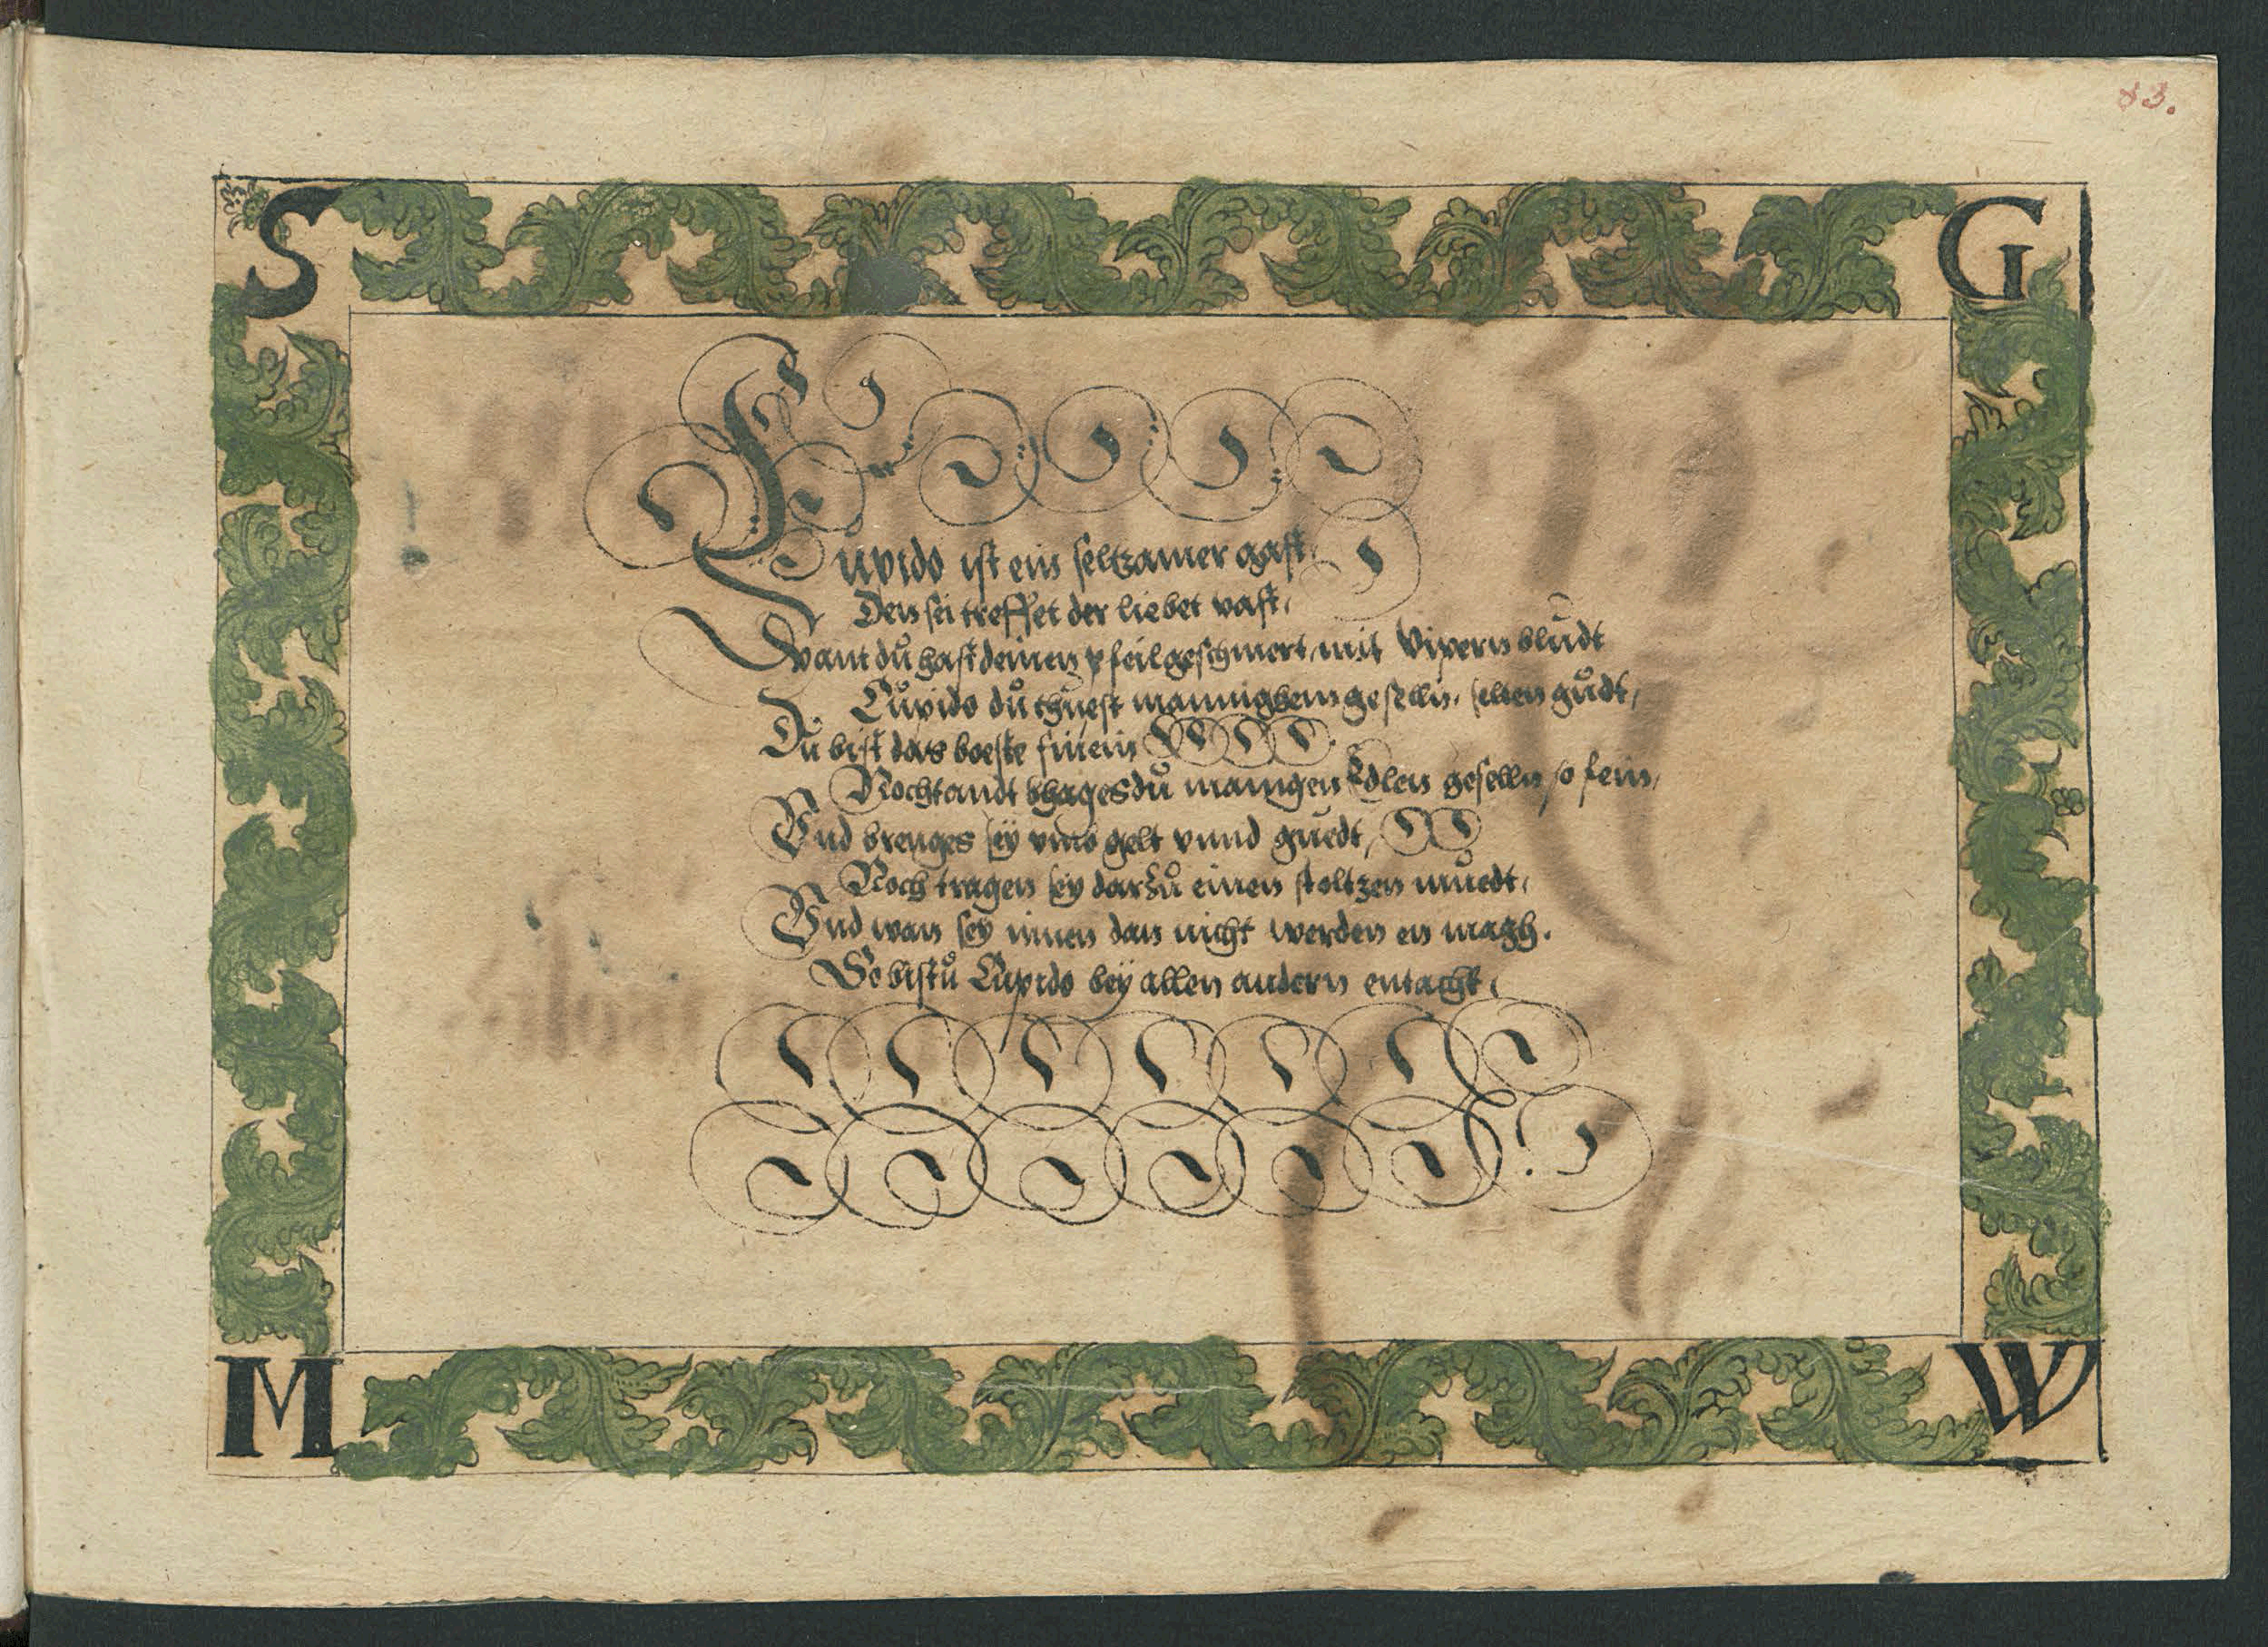 83.
S G
Cupido ist ein seltzamer gast,
Den sei treffet der liebet vast,
Want dů hast deinen pfeil geschmert, mit Vipern blůdt
Cůpido dů thůest mannighem geselln, selten gůdt,
Dů bist das boeste
Nochtandt bhages dů manigen Edlen geselln so fein,
Vnd brenges sey vmb gelt vnnd gůedt,
Noch tragen sey darzů einen stoltzen můedt,
Vnd wan sey innen dan nicht werden en magh.
So bistů Cupido bey allen andern
M W